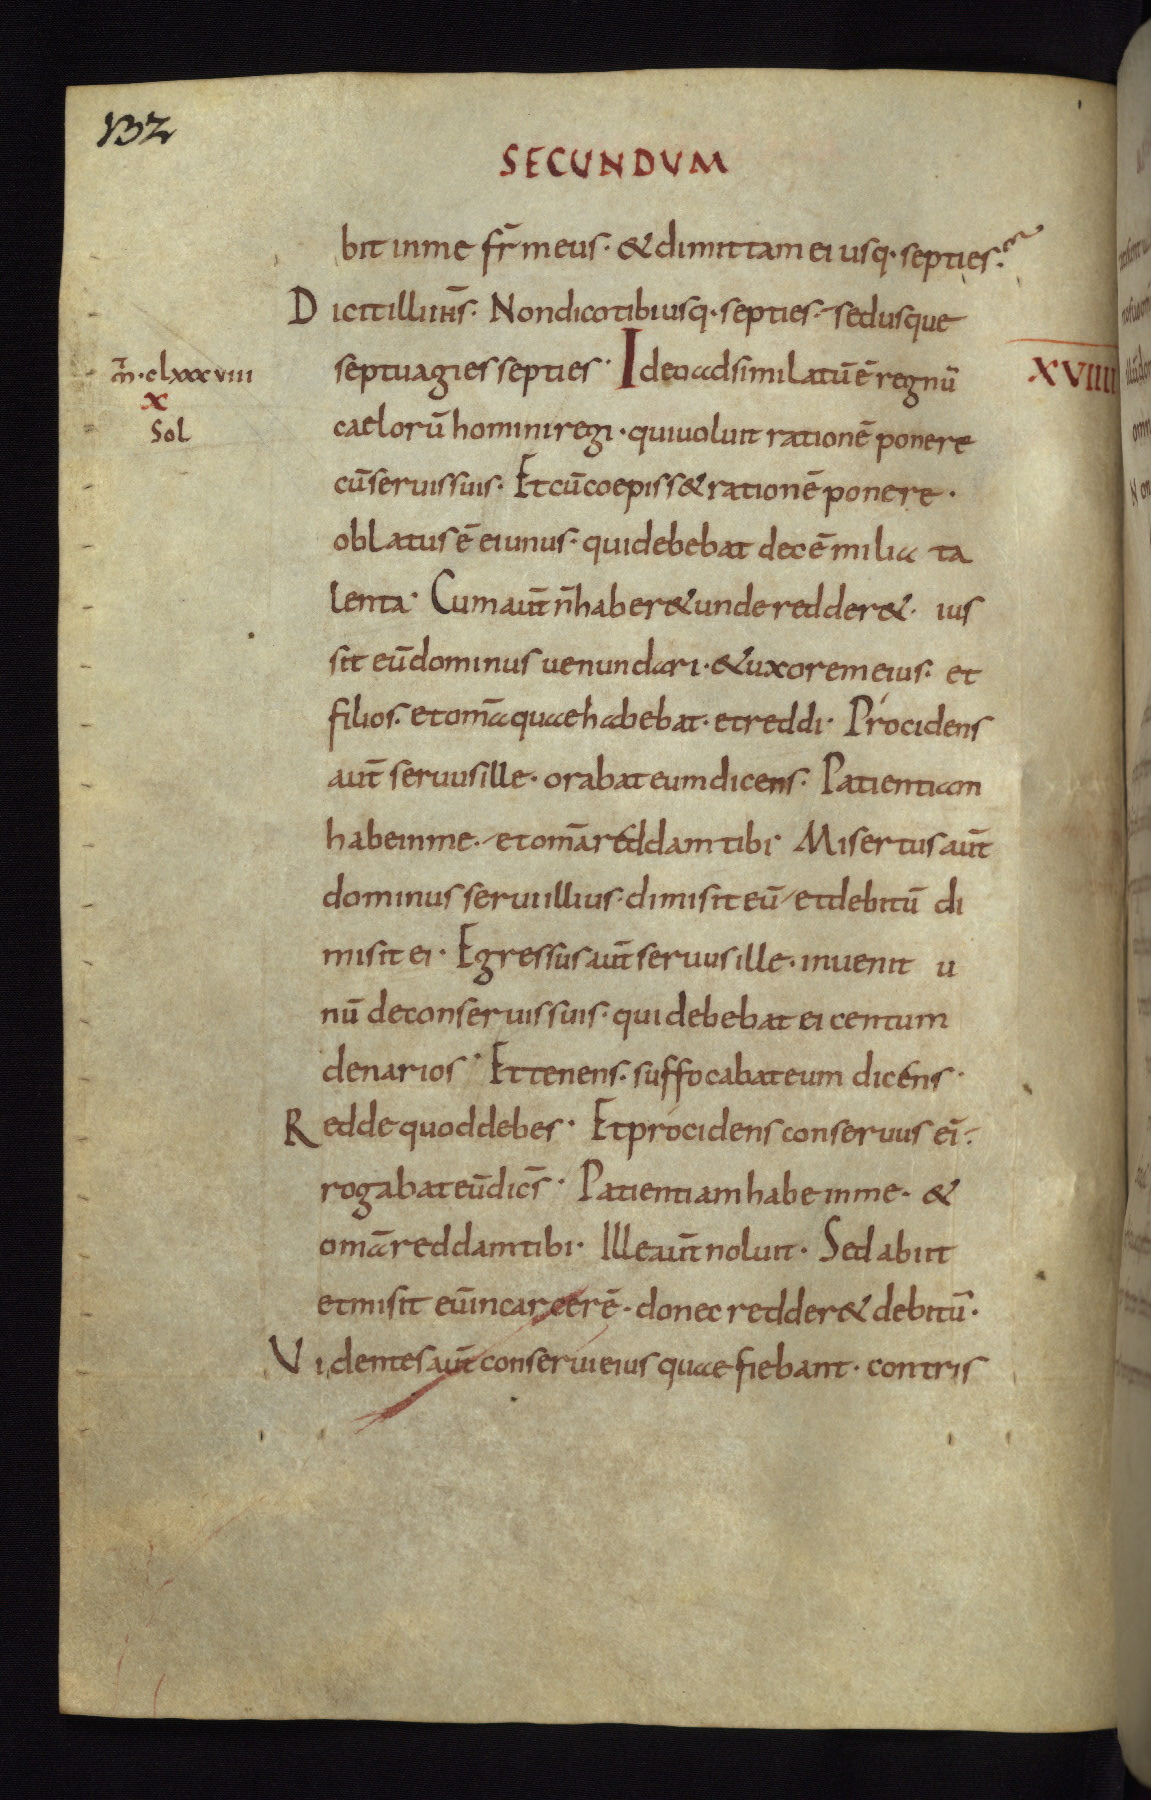 132
SECUNDUM
bit in me fr̄ meus· & dimittam ei usq· septies·
Dicit illi ih̄s· Non dico tibi usq· septies· sed usque
m̄·clxxxviii
x
Sol
septuagies septies· Ideo adsimilatū ē regnū
XVIIII
caelorū homini regi· qui uoluit rationē ponere
cū seruis suis· Et cū coepiss& rationē ponere·
oblatus ē ei unus· qui debebat decē milia ta
lenta· Cum aut̄ n̄ haber& unde redder&· ius
sit eū dominus uenundari· & uxorem eius· et
filios· et om̄a quae habebat· et reddi· Procidens
aut̄ seruus ille· orabat eum dicens· Patientiam
habe in me· et om̄a reddam tibi· Misertus aut̄
dominus serui illius· dimisit eū et debitū di
misit ei· Egressus aut̄ seruus ille· inuenit u
nū de conseruis suis· qui debebat ei centum
denarios· Et tenens· suffocabat eum dicens·
Redde quod debes· Et procidens conseruus ei·
rogabat eū dic̄s· Patientiam habe in me· &
om̄a reddam tibi· Ille aut̄ noluit· Sed abiit
et misit eū in carcerē· donec redder& debitū·
Videntes aut̄ conserui eius quae fiebant· contris